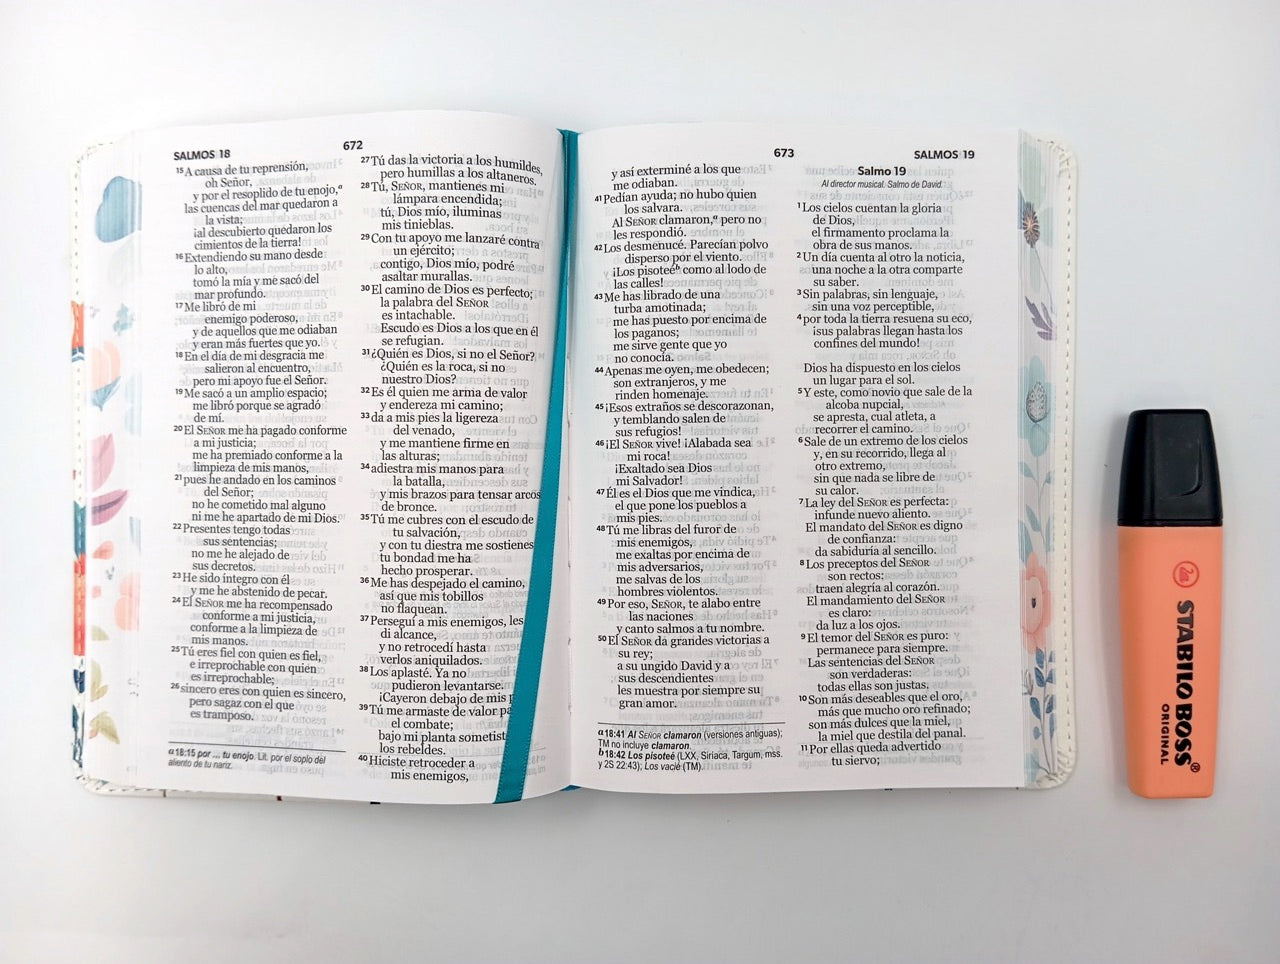 SALMOS 18
672
15 A causa de tu reprensión,
oh Señor,
y por el resoplido de tu enojo,a
las cuencas del mar quedaron a
la vista;
¡al descubierto quedaron los
cimientos de la tierra!
16 Extendiendo su mano desde
lo alto,
tomó la mía y me sacó del
mar profundo.
17 Me libró de mi
enemigo poderoso,
y de aquellos que me odiaban
y eran más fuertes que yo.
18 En el día de mi desgracia me
salieron al encuentro,
pero mi apoyo fue el Señor.
19 Me sacó a un amplio espacio;
me libró porque se agradó
de mí.
20 El Señor me ha pagado conforme
a mi justicia;
me ha premiado conforme a la
limpieza de mis manos,
21 pues he andado en los caminos
del Señor;
no he cometido mal alguno
ni me he apartado de mi Dios.
22 Presentes tengo todas
sus sentencias;
no me he alejado de
sus decretos.
23 He sido íntegro con él
y me he abstenido de pecar.
24 El Señor me ha recompensado
conforme a mi justicia,
conforme a la limpieza de
mis manos.
25 Tú eres fiel con quien es fiel,
e irreprochable con quien
es irreprochable;
26 sincero eres con quien es sincero,
pero sagaz con el que
es tramposo.
a 18:15 por ... tu enojo. Lit. por el soplo del
aliento de tu nariz.
27 Tú das la victoria a los humildes,
pero humillas a los altaneros.
28 Tú, Señor, mantienes mi
lámpara encendida;
tú, Dios mío, iluminas
mis tinieblas.
29 Con tu apoyo me lanzaré contra
un ejército;
contigo, Dios mío, podré
asaltar murallas.
30 El camino de Dios es perfecto;
la palabra del Señor
es intachable.
Escudo es Dios a los que en él
se refugian.
31 ¿Quién es Dios, si no el Señor?
¿Quién es la roca, si no
nuestro Dios?
32 Es él quien me arma de valor
y endereza mi camino;
33 da a mis pies la ligereza
del venado,
y me mantiene firme en
las alturas;
34 adiestra mis manos para
la batalla,
y mis brazos para tensar arcos
de bronce.
35 Tú me cubres con el escudo de
tu salvación,
y con tu diestra me sostienes;
tu bondad me ha
hecho prosperar.
36 Me has despejado el camino,
así que mis tobillos
no flaquean.
37 Perseguí a mis enemigos, les
di alcance,
y no retrocedí hasta
verlos aniquilados.
38 Los aplasté. Ya no
pudieron levantarse.
¡Cayeron debajo de mis
39 Tú me armaste de valor
el combate;
bajo mi planta sometist
los rebeldes.
40 Hiciste retroceder a
mis enemigos,
673
SALMOS 19
y así exterminé a los que
me odiaban.
41 Pedían ayuda; no hubo quien
los salvara.
Al Señor clamaron,a pero no
les respondió.
42 Los desmenucé. Parecían polvo
disperso por el viento.
¡Los pisoteéb como al lodo de
las calles!
43 Me has librado de una
turba amotinada;
me has puesto por encima de
los paganos;
me sirve gente que yo
no conocía.
44 Apenas me oyen, me obedecen;
son extranjeros, y me
rinden homenaje.
45 ¡Esos extraños se descorazonan,
y temblando salen de
sus refugios!
46 ¡El Señor vive! ¡Alabada sea
mi roca!
¡Exaltado sea Dios
mi Salvador!
47 Él es el Dios que me vindica,
el que pone los pueblos a
mis pies.
48 Tú me libras del furor de
mis enemigos,
me exaltas por encima de
mis adversarios,
me salvas de los
hombres violentos.
49 Por eso, Señor, te alabo entre
las naciones
y canto salmos a tu nombre.
50 El Señor da grandes victorias a
su rey;
a su ungido David y a
sus descendientes
les muestra por siempre su
gran amor.
a 18:41 Al Señor clamaron (versiones antiguas);
TM no incluye clamaron.
b 18:42 Los pisoteé (LXX, Siríaca, Targum, mss.
y 2S 22:43); Los vacié (TM).
Salmo 19
Al director musical. Salmo de David.
1 Los cielos cuentan la gloria
de Dios,
el firmamento proclama la
obra de sus manos.
2 Un día cuenta al otro la noticia,
una noche a la otra comparte
su saber.
3 Sin palabras, sin lenguaje,
sin una voz perceptible,
4 por toda la tierra resuena su eco,
¡sus palabras llegan hasta los
confines del mundo!
Dios ha dispuesto en los cielos
un lugar para el sol.
5 Y este, como novio que sale de la
alcoba nupcial,
se apresta, cual atleta, a
recorrer el camino.
6 Sale de un extremo de los cielos
y, en su recorrido, llega al
otro extremo,
sin que nada se libre de
su calor.
7 La ley del Señor es perfecta:
infunde nuevo aliento.
El mandato del Señor es digno
de confianza:
da sabiduría al sencillo.
8 Los preceptos del Señor
son rectos:
traen alegría al corazón.
El mandamiento del Señor
es claro:
da luz a los ojos.
9 El temor del Señor es puro:
permanece para siempre.
Las sentencias del Señor
son verdaderas:
todas ellas son justas.
10 Son más deseables que el oro,
más que mucho oro refinado;
son más dulces que la miel,
la miel que destila del panal.
11 Por ellas queda advertido
tu siervo;
STABILO BOSS®
ORIGINAL